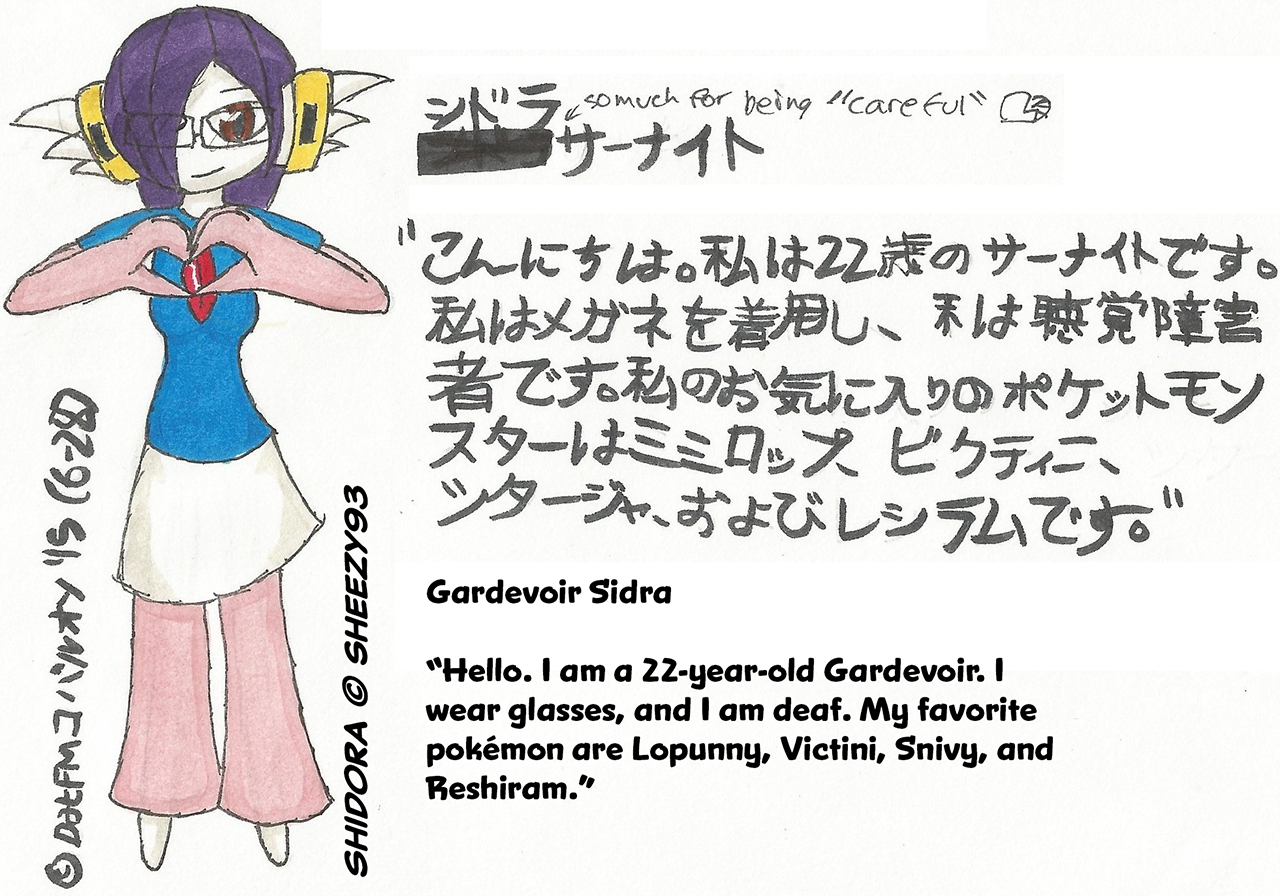 シドラ
so much for being "careful"
サーナイト
"こんにちは。私は22歳のサーナイトです。
私はメガネを着用し、私は聴覚障害
者です。私のお気に入りのポケットモン
スターはミミロップ、ビクティニ、
ツタージャ、およびレシラムです。"
Gardevoir Sidra
“Hello. I am a 22-year-old Gardevoir. I
wear glasses, and I am deaf. My favorite
pokémon are Lopunny, Victini, Snivy, and
Reshiram.”
SHIDORA © SHEEZY93
コバルオン '15 (6-28)